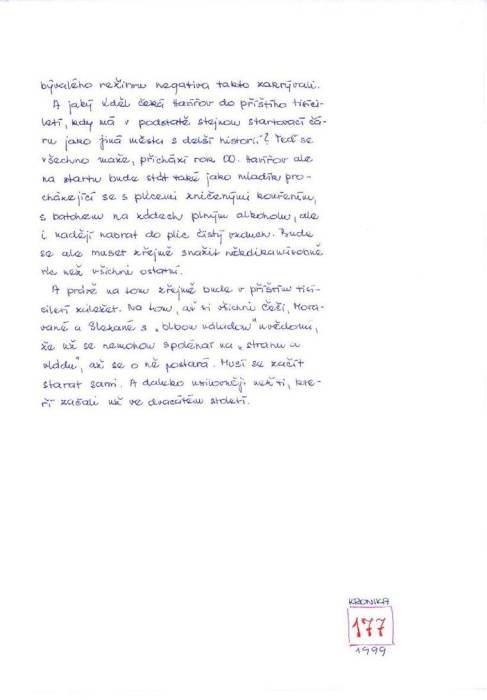 bývalého režimu negativa takto zakrývali.
A jaký úděl čeká Havířov do příštího tisíci-
letí, kdy má v podstatě stejnou startovací čá-
ru jako jiná města s delší historií? Teď se
všechno maže, přichází rok 00. Havířov ale
na startu bude stát také jako mladík pro-
cházející se s plícemi zničenými kouřením,
s batohem na zádech plným alkoholu, ale
i nadějí nabrat do plic čistý vzduch. Bude
se ale muset zřejmě snažit několikanásobně
víc než všichni ostatní.
A právě na tom zřejmě bude v příštím tisí-
ciletí záležet. Na tom, až si všichni Češi, Mora-
vané a Slezané s "blbou náladou" uvědomí,
že už se nemohou spoléhat na "stranu a
vládu", až se o ně postará. Musí se začít
starat sami. A daleko usilovněji než ti, kte-
ří začali už ve dvacátém století.
KRONIKA
177
1999